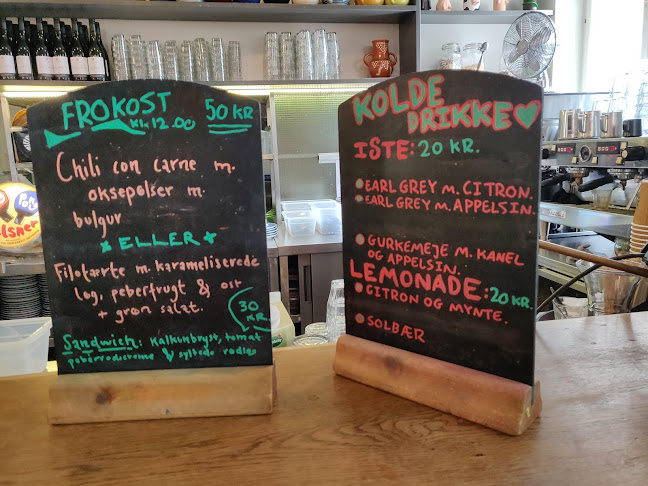 FROKOST
Kl. 12.00
50 KR
Chili con carne m.
oksepølser m.
bulgur
ELLER
Filotærte m. karameliserede
løg, peberfrugt & ost
+ grøn salat.
30 KR.
Sandwich: Kalkunbryst, tomat
peberrodscreme & syltede rødløg
KOLDE
DRIKKE
ISTE: 20 KR.
EARL GREY M. CITRON.
EARL GREY M. APPELSIN.
GURKEMEJE M. KANEL
OG APPELSIN.
LEMONADE: 20 KR.
CITRON OG MYNTE.
SOLBÆR